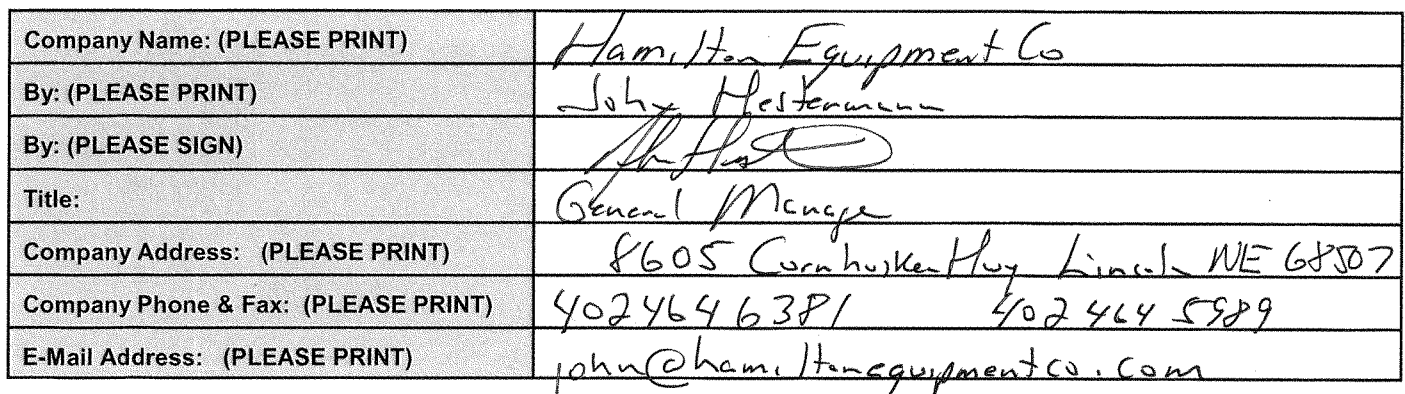 Company Name: (PLEASE PRINT) Hamilton Equipment Co
By: (PLEASE PRINT) John Hestermann
By: (PLEASE SIGN)
Title: General Manager
Company Address: (PLEASE PRINT) 8605 Cornhusker Hwy Lincoln NE 68507
Company Phone & Fax: (PLEASE PRINT) 4024646381 402 464 5989
E-Mail Address: (PLEASE PRINT) john@hamiltonequipmentco.com